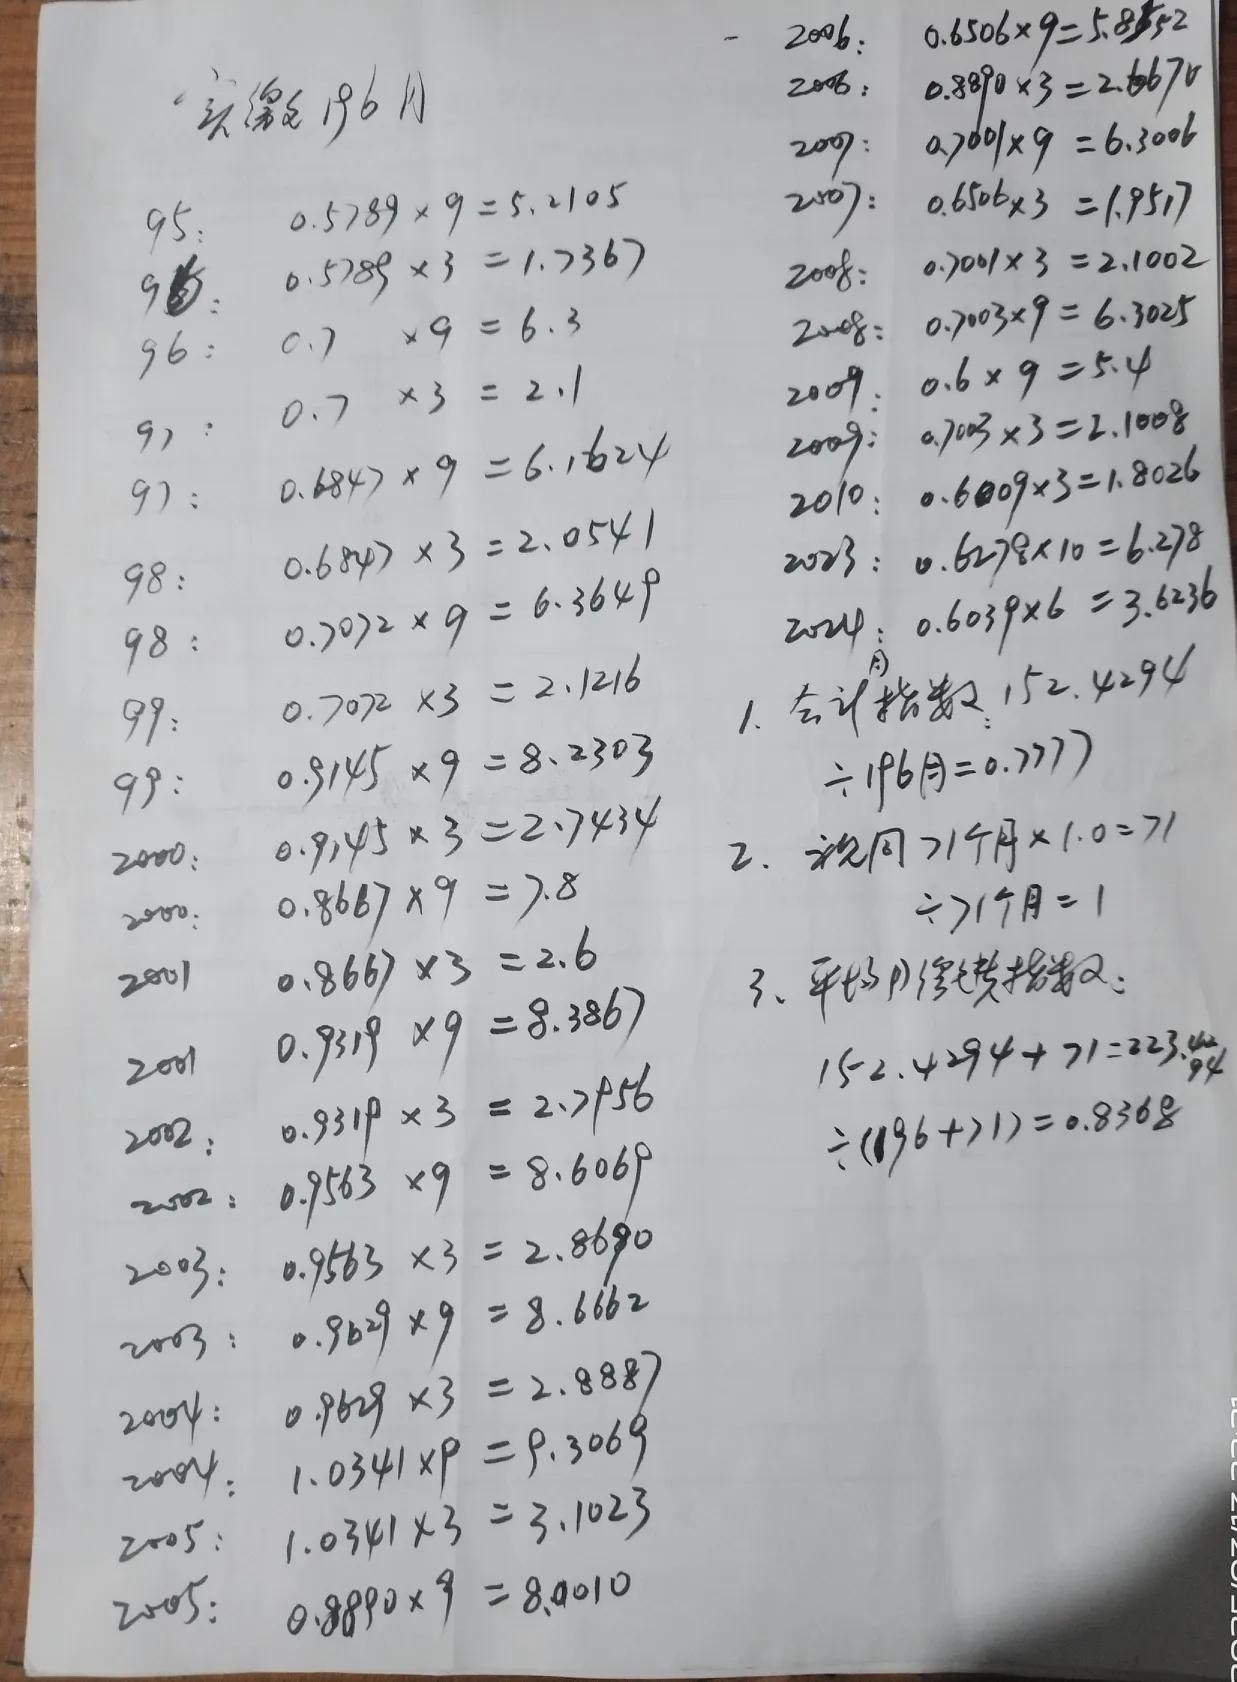 实缴196月
95: 0.5789×9=5.2105
96: 0.5789×3=1.7367
96: 0.7 ×9=6.3
97: 0.7 ×3=2.1
97: 0.6847×9=6.1624
98: 0.6847×3=2.0541
98: 0.7072×9=6.3649
99: 0.7072×3=2.1216
99: 0.9145×9=8.2303
2000: 0.9145×3=2.7434
2000: 0.8667×9=7.8
2001 0.8667×3=2.6
2001 0.9319×9=8.3867
2002: 0.9319×3=2.7956
2002: 0.9563×9=8.6069
2003: 0.9563×3=2.8690
2003: 0.9629×9=8.6662
2004: 0.9629×3=2.8887
2004: 1.0341×9=9.3069
2005: 1.0341×3=3.1023
2005: 0.8890×9=8.0010
2006: 0.6506×9=5.8552
2006: 0.8890×3=2.6670
2007: 0.7001×9=6.3006
2007: 0.6506×3=1.9517
2008: 0.7001×3=2.1002
2008: 0.7003×9=6.3025
2009: 0.6×9=5.4
2009: 0.7003×3=2.1008
2010: 0.6009×3=1.8026
2023: 0.6278×10=6.278
2024: 0.6039×6=3.6236
1. 合计月指数:152.4294
÷196月=0.7777
2. 视同71个月×1.0=71
÷71个月=1
3、平均月缴费指数:
152.4294+71=223.4294
÷(196+71)=0.8368